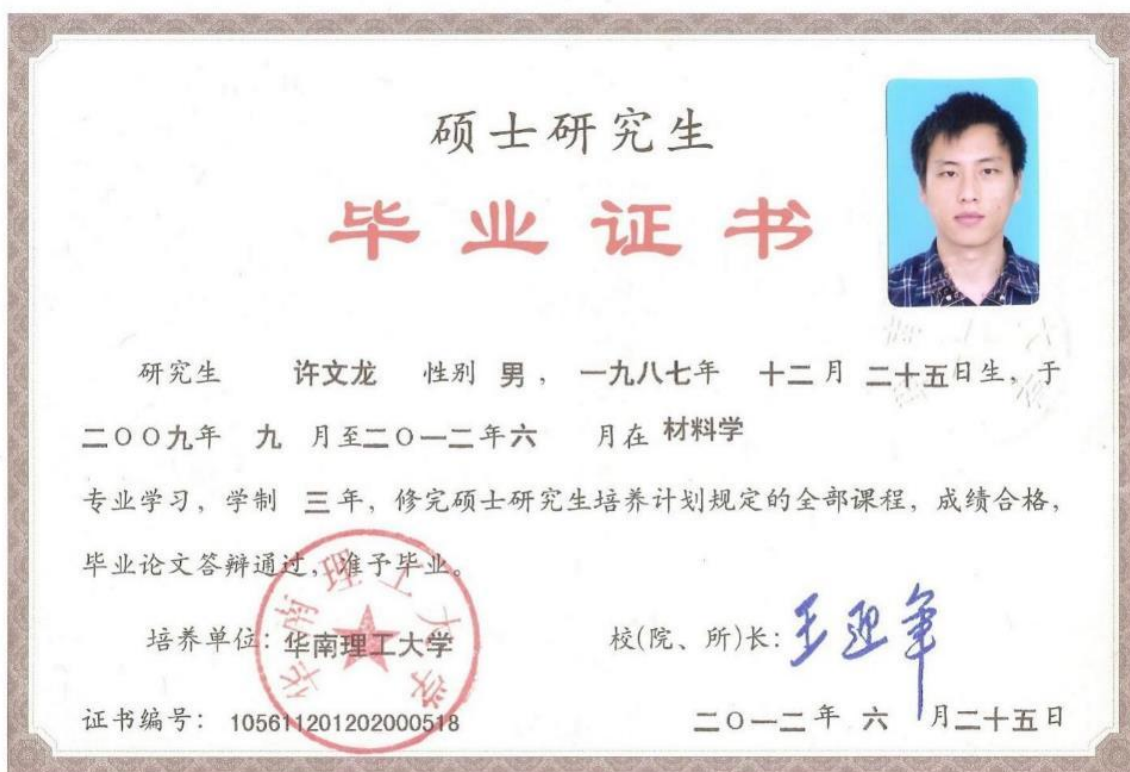 硕士研究生
毕业证书
研究生 许文龙 性别 男， 一九八七年 十二月 二十五日生，于
二〇〇九年 九 月至二〇一二年六 月在 材料学
专业学习，学制 三年，修完硕士研究生培养计划规定的全部课程，成绩合格，
毕业论文答辩通过，准予毕业。
培养单位：华南理工大学
校(院、所)长：王迎军
华南理工大学
证书编号： 105611201202000518
二〇一二年 六 月二十五日